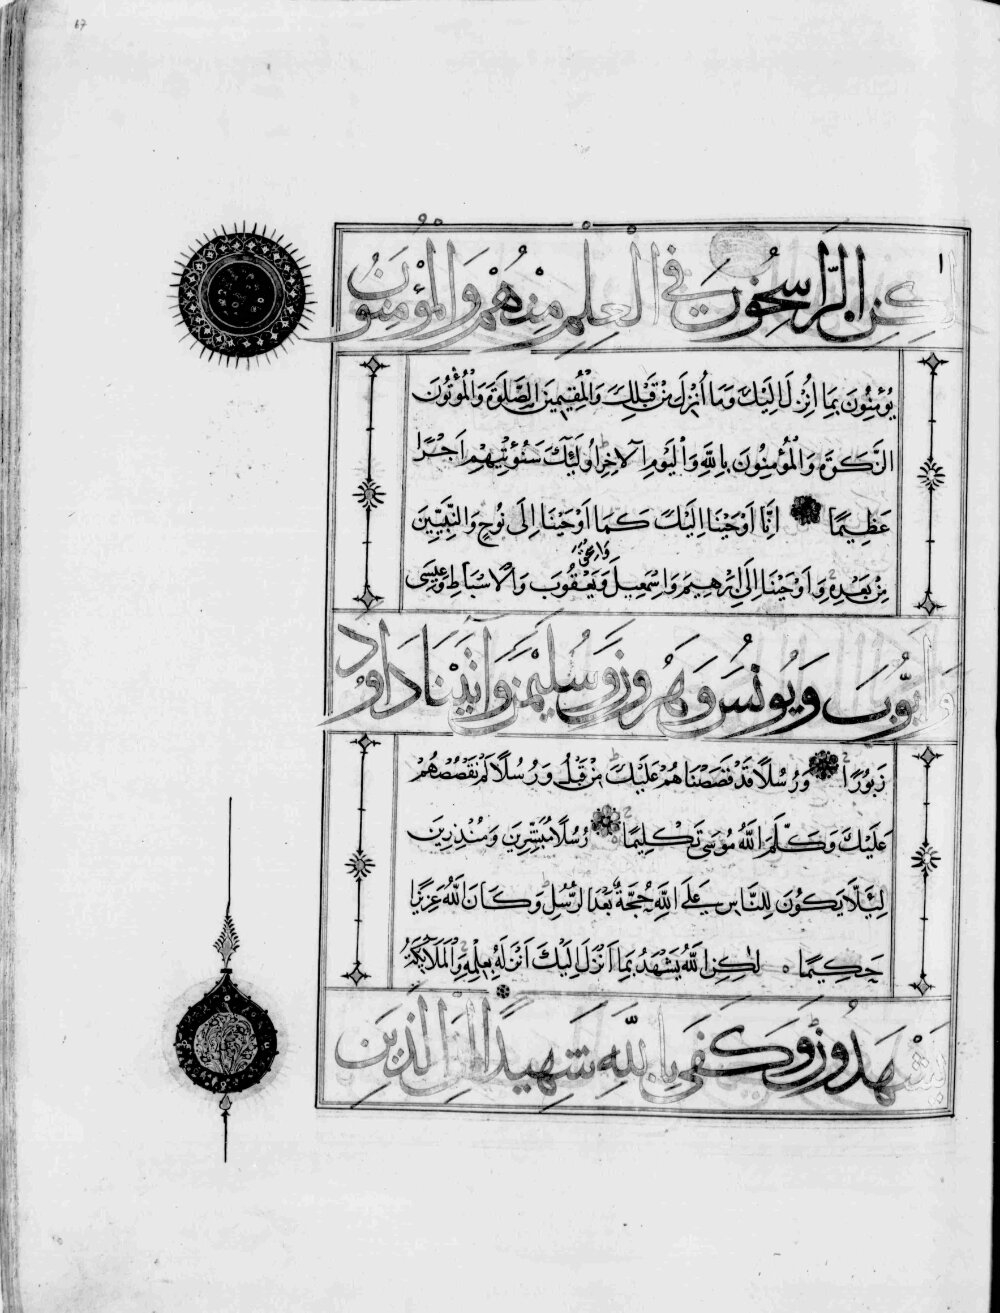 67
لكِنِ الرَّاسِخُونَ فِي الْعِلْمِ مِنْهُمْ وَالْمُؤْمِنُونَ
يُؤْمِنُونَ بِمَا أُنْزِلَ إِلَيْكَ وَمَا أُنْزِلَ مِنْ قَبْلِكَ وَالْمُقِيمِينَ الصَّلَوةَ وَالْمُؤْتُونَ
الزَّكَوةَ وَالْمُؤْمِنُونَ بِاللَّهِ وَالْيَوْمِ الْآخِرِ أُولَئِكَ سَنُؤْتِيهِمْ أَجْرًا
عَظِيمًا إِنَّا أَوْحَيْنَا إِلَيْكَ كَمَا أَوْحَيْنَا إِلَى نُوحٍ وَالنَّبِيِّينَ
مِنْ بَعْدِهِ وَأَوْحَيْنَا إِلَى إِبْرَهِيمَ وَإِسْمَعِيلَ وَيَعْقُوبَ وَالْأَسْبَاطِ وَعِيسَى
وَأَيُّوبَ وَيُونُسَ وَهَرُونَ وَسُلَيْمَنَ وَآتَيْنَا دَاوُدَ
زَبُورًا وَرُسُلًا قَدْ قَصَصْنَاهُمْ عَلَيْكَ مِنْ قَبْلُ وَرُسُلًا لَمْ نَقْصُصْهُمْ
عَلَيْكَ وَكَلَّمَ اللَّهُ مُوسَى تَكْلِيمًا رُسُلًا مُبَشِّرِينَ وَمُنْذِرِينَ
لِئَلَّا يَكُونَ لِلنَّاسِ عَلَى اللَّهِ حُجَّةٌ بَعْدَ الرُّسُلِ وَكَانَ اللَّهُ عَزِيزًا
حَكِيمًا لَكِنِ اللَّهُ يَشْهَدُ بِمَا أَنْزَلَ إِلَيْكَ أَنْزَلَهُ بِعِلْمِهِ وَالْمَلَائِكَةُ
يَشْهَدُونَ وَكَفَى بِاللَّهِ شَهِيدًا إِنَّ الَّذِينَ